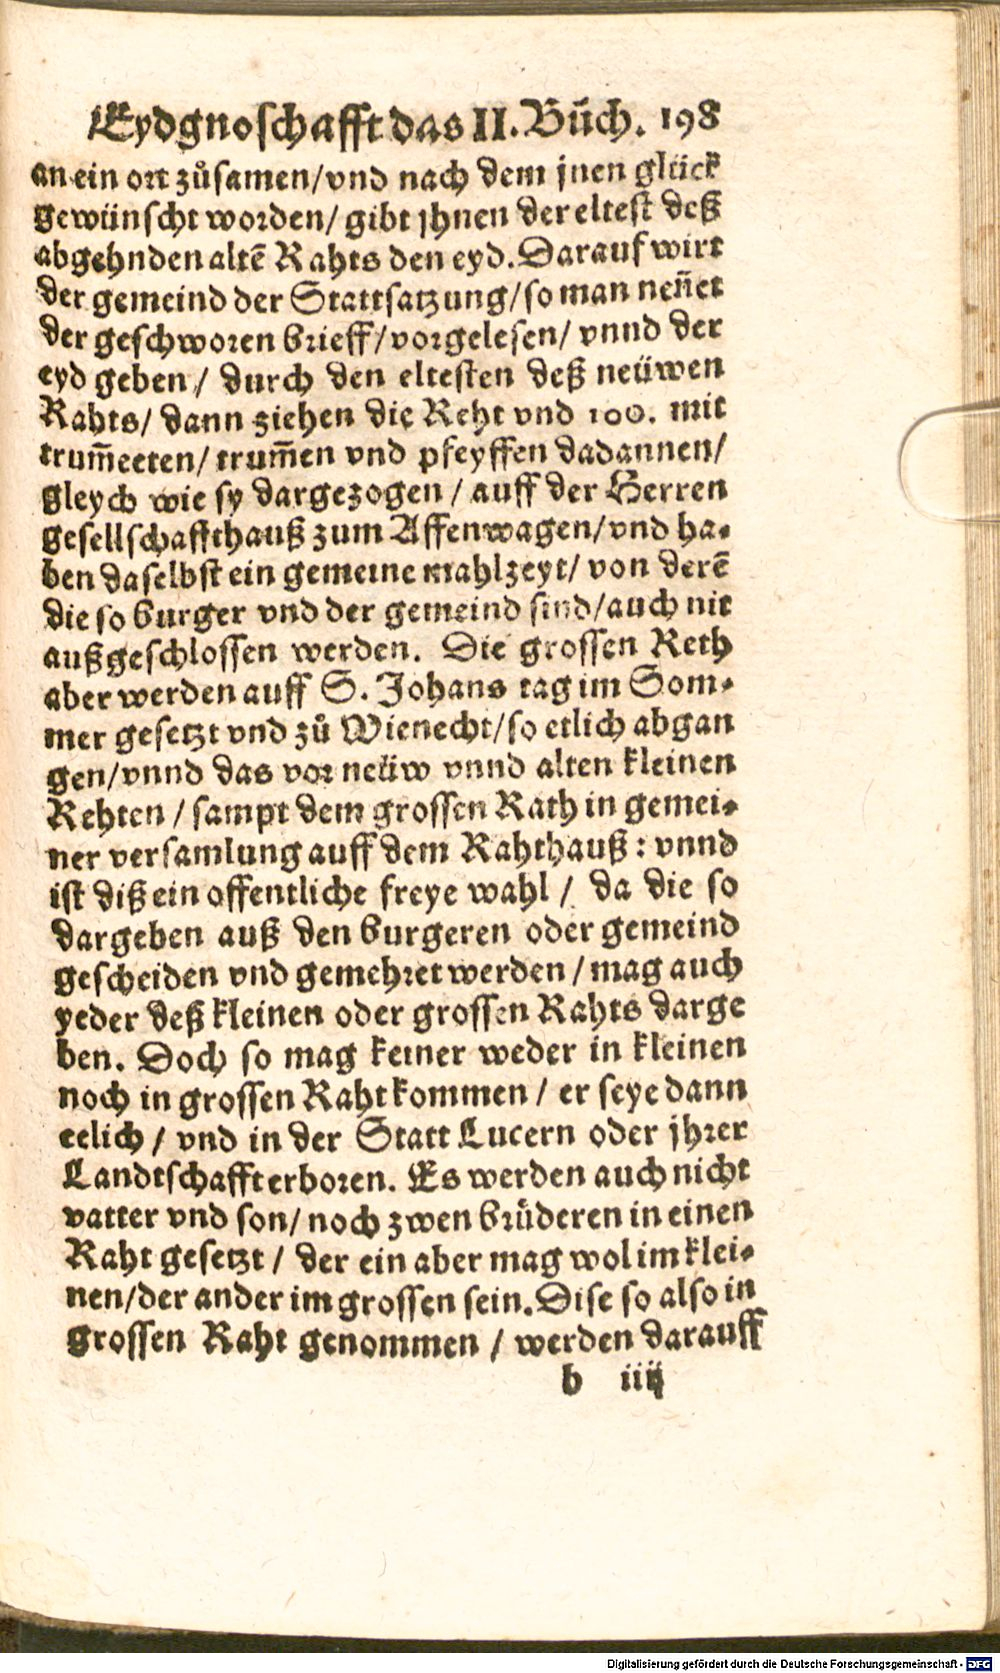 Eydgnoschafft das II. Bůch. 198
an ein ort zůsamen/vnd nach dem jnen glück
gewünscht worden/ gibt jhnen der eltest deß
abgehnden altē Rahts den eyd. Darauf wirt
der gemeind der Stattsatzung/so man neñet
der geschworen brieff/vorgelesen/ vnnd der
eyd geben/ durch den eltesten deß neüwen
Rahts/ dann ziehen die Reht vnd 100. mit
trum̃eeten/ trum̃en vnd pfeyffen dadannen/
gleych wie sy dargezogen / auff der Herren
gesellschaffthauß zum Affenwagen/vnd ha-
ben daselbst ein gemeine mahlzeyt/ von derē
die so burger vnd der gemeind sind/auch nit
außgeschlossen werden. Die grossen Reth
aber werden auff S. Johans tag im Som-
mer gesetzt vnd zů Wienecht/so etlich abgan
gen/vnnd das vor neüw vnnd alten kleinen
Rehten / sampt dem grossen Rath in gemei-
ner versamlung auff dem Rahthauß: vnnd
ist diß ein offentliche freye wahl / da die so
dargeben auß den burgeren oder gemeind
gescheiden vnd gemehret werden / mag auch
yeder deß kleinen oder grossen Rahts darge
ben. Doch so mag keiner weder in kleinen
noch in grossen Raht kommen / er seye dann
eelich / vnd in der Statt Lucern oder jhrer
Landtschafft erboren. Es werden auch nicht
vatter vnd son/ noch zwen brüderen in einen
Raht gesetzt / der ein aber mag wol im klei-
nen/der ander im grossen sein. Dise so also in
grossen Raht genommen / werden darauff
b iiij
Digitalisierung gefördert durch die Deutsche Forschungsgemeinschaft - DFG